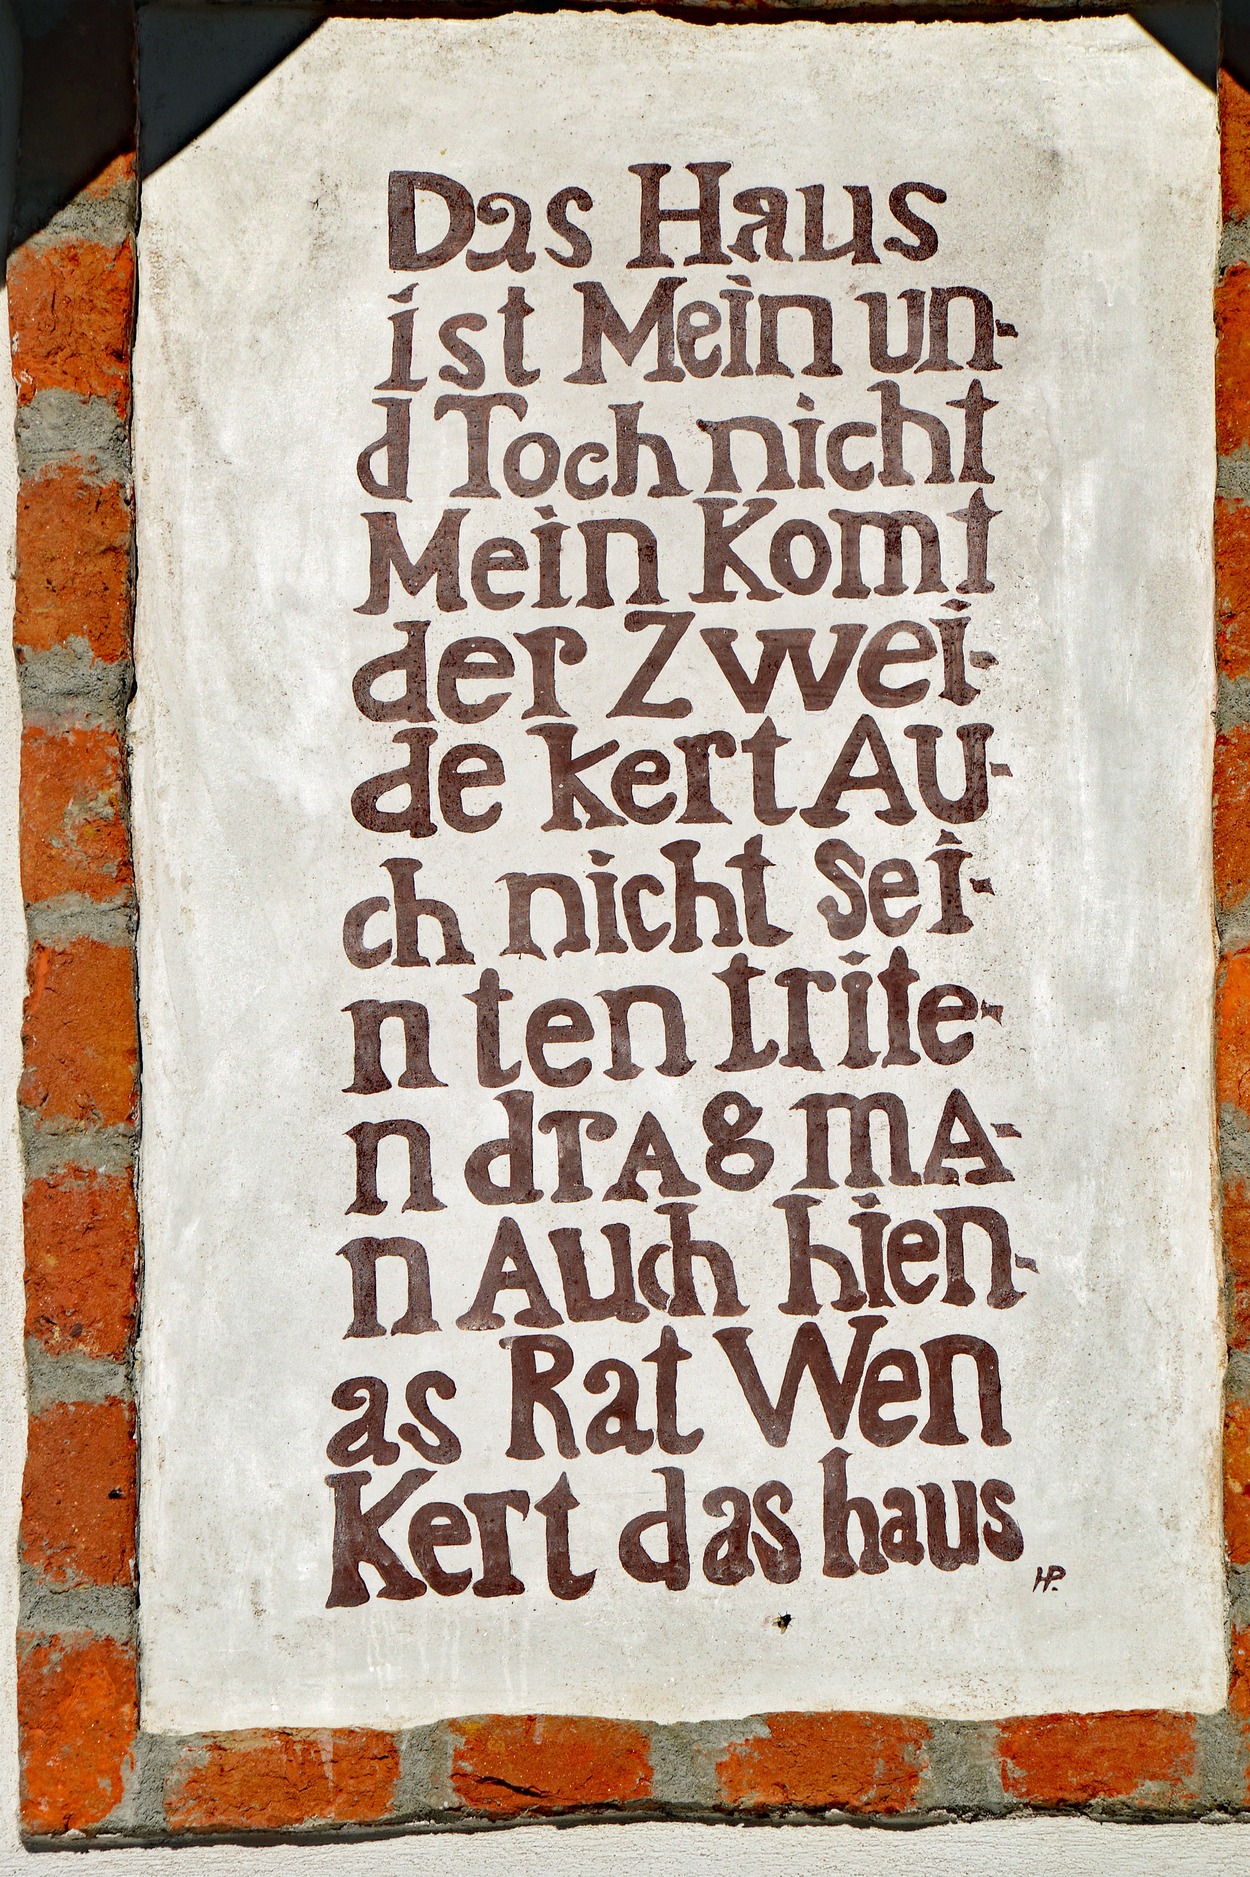 Das Haus
ist Mein un-
d Toch nicht
Mein Komt
der Zwei-
de kert AU-
ch nicht sei-
n ten trite-
n drAg mA-
n Auch hien-
as Rat Wen
Kert das haus
HP.